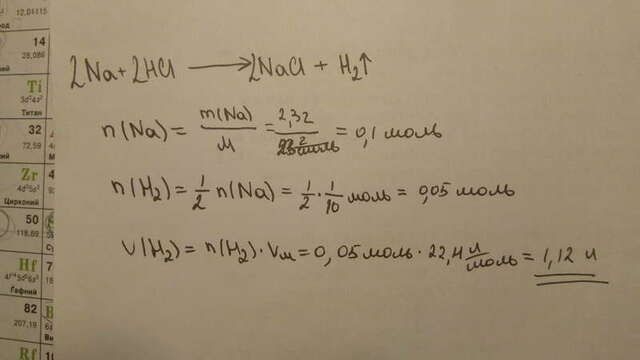 12,01115
14
28,086
Ti
3d²4s²
Титан
32
72,59
Zr
4d²5s²
Цирконий
50
118,69
Hf
4f¹⁴5d²6s²
Гафний
82
207,19
Rf
2Na+2HCl ⟶ 2NaCl + H₂↑
n(Na) = m(Na)/M = 2,3г/ = 0,1 моль
n(H₂) = 1/2 n(Na) = 1/2 · 1/10 моль = 0,05 моль
V(H₂) = n(H₂) · Vм = 0,05 моль · 22,4 л/моль = 1,12 л